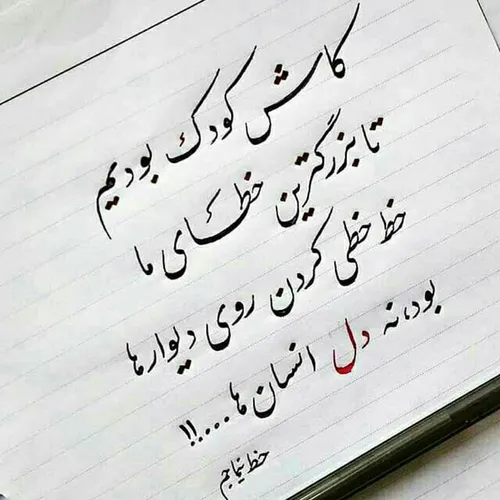 کاش کودک بودیم
تا بزرگترین خطای ما
خط خطی کردن روی دیوارها
بود، نه دل انسان ها....!!
خط نیماجم